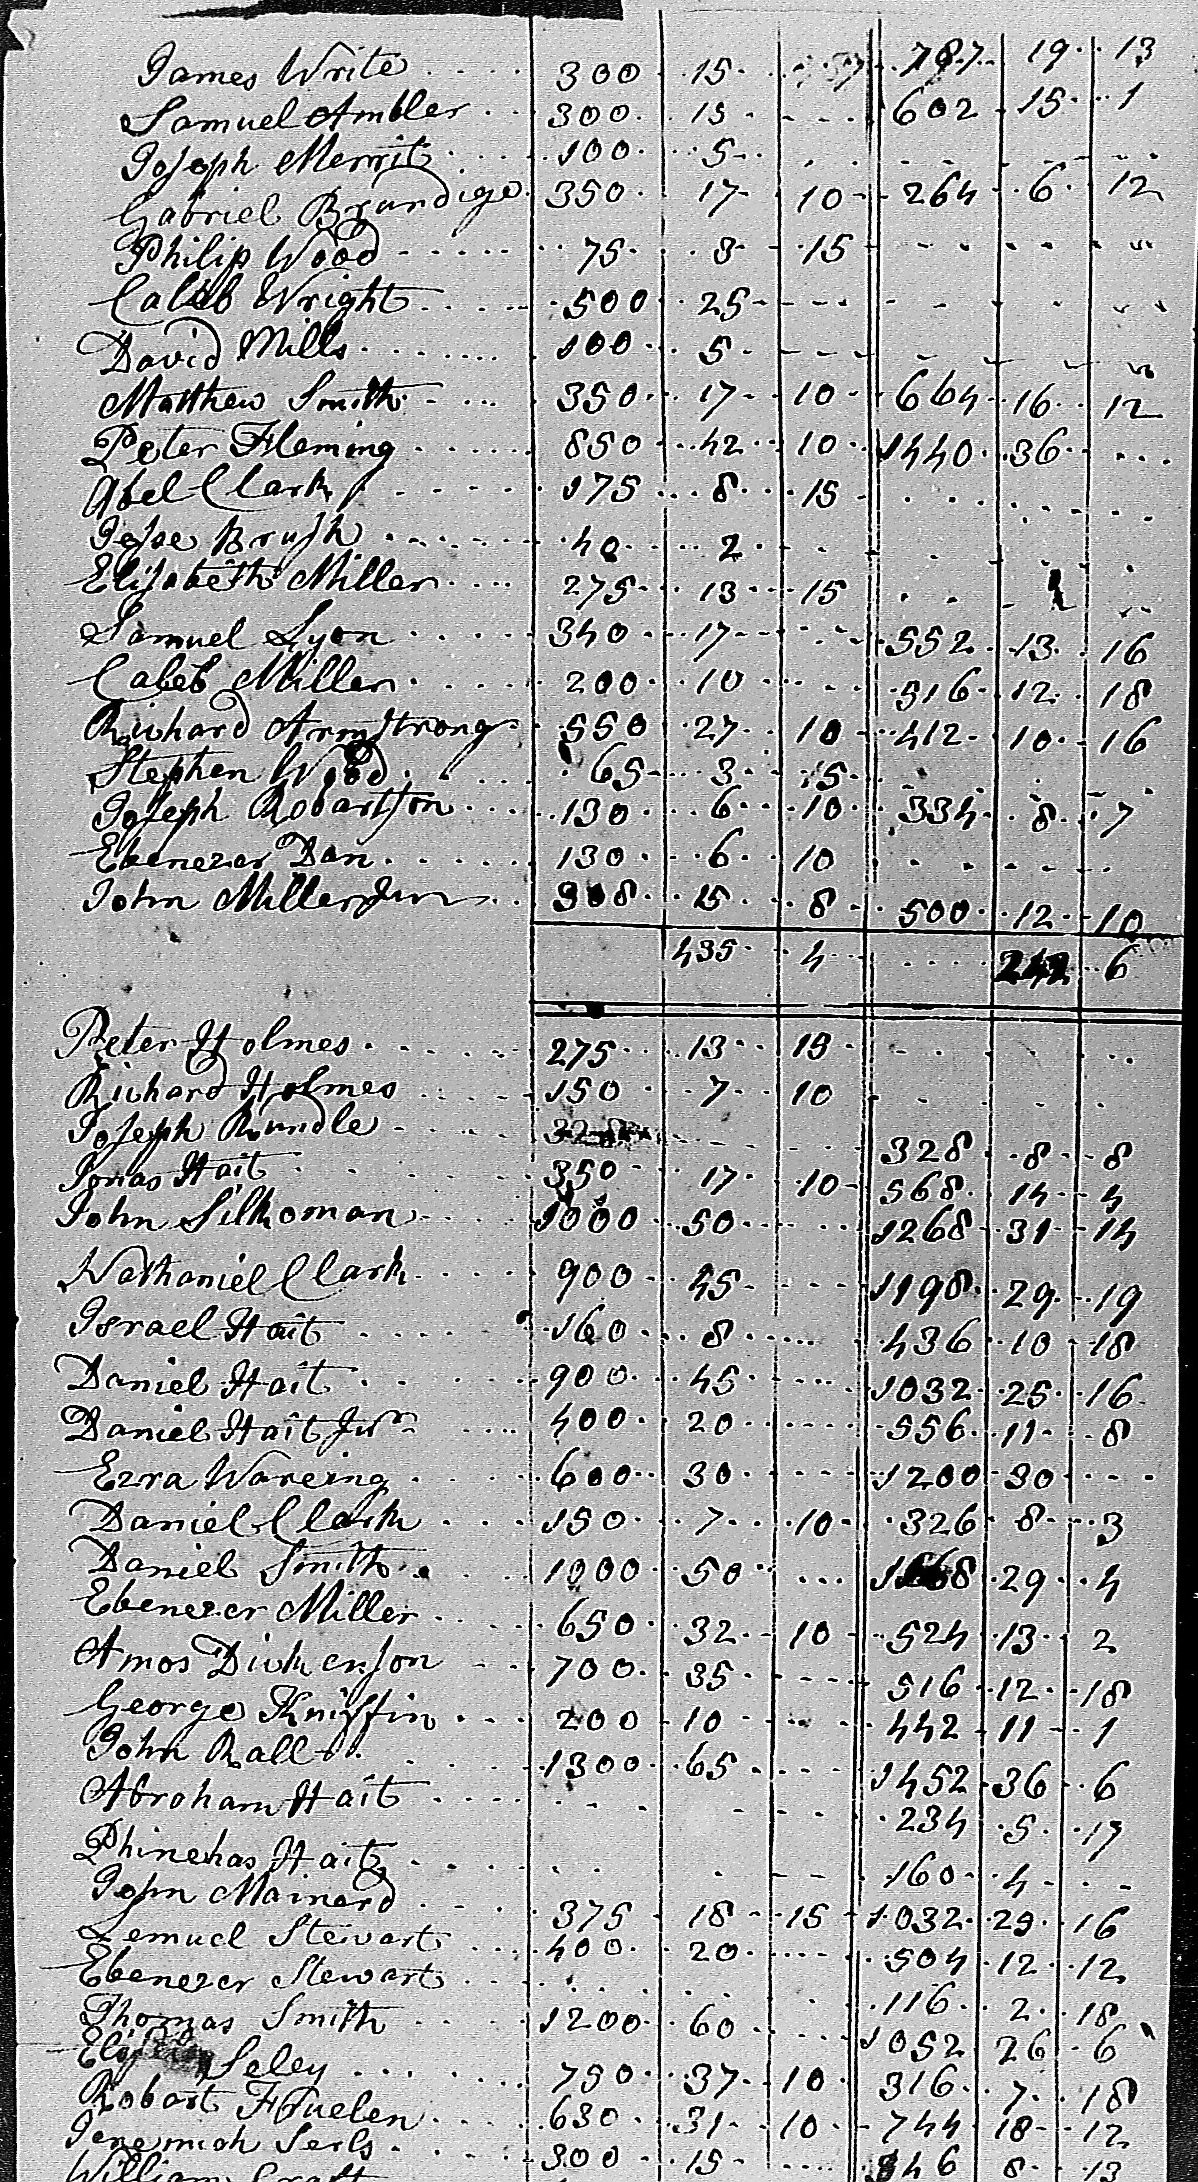 James Write 300 15 787 19 13
Samuel Ambler 300 15 602 15 1
Joseph Merrit 100 5
Gabriel Brundige 350 17 10 264 6 12
Philip Wood 75 3 15
Caleb Wright 500 25
David Mills 100 5
Matthew Smith 350 17 10 664 16 12
Peter Fleming 850 42 10 1440 36
Abel Clark 175 8 15
Jesse Brush 40 2
Elisabeth Miller 275 13 15
Samuel Lyon 340 17 552 13 16
Caleb Miller 200 10 516 12 18
Richard Armstrong 550 27 10 412 10 16
Stephen Wood 65 3 5
Joseph Robartson 130 6 10 334 8 7
Ebenezer Dan 130 6 10
John Miller Jun 308 15 8 500 12 10
435 4 242 6
Peter Holmes 275 13 15
Richard Holmes 150 7 10
Joseph Rundle 328 8 8
Jonas Hait 350 17 10 568 14 4
John Silkoman 1000 50 1268 31 14
Nathaniel Clark 900 45 1198 29 19
Israel Hait 160 8 436 10 18
Daniel Hait 900 45 1032 25 16
Daniel Hait Jur 400 20 556 11 8
Ezra Wareing 600 30 1200 30
Daniel Clark 150 7 10 326 8 3
Daniel Smith 1000 50 1168 29 4
Ebenezer Miller 650 32 10 524 13 2
Amos Dickerson 700 35 516 12 18
George Kniffin 200 10 442 11 1
John Rall 1300 65 1452 36 6
Abroham Hait 234 5 17
Phinehas Hait 160 4
John Mainard 375 18 15 1032 25 16
Lemuel Stewart 400 20 504 12 12
Ebenezer Stewart 116 2 18
Thomas Smith 1200 60 1052 26 6
Seley 750 37 10 316 7 18
Robart Fluelen 630 31 10 744 18 12
Jeremiah Serls 300 15 346 8 13
William